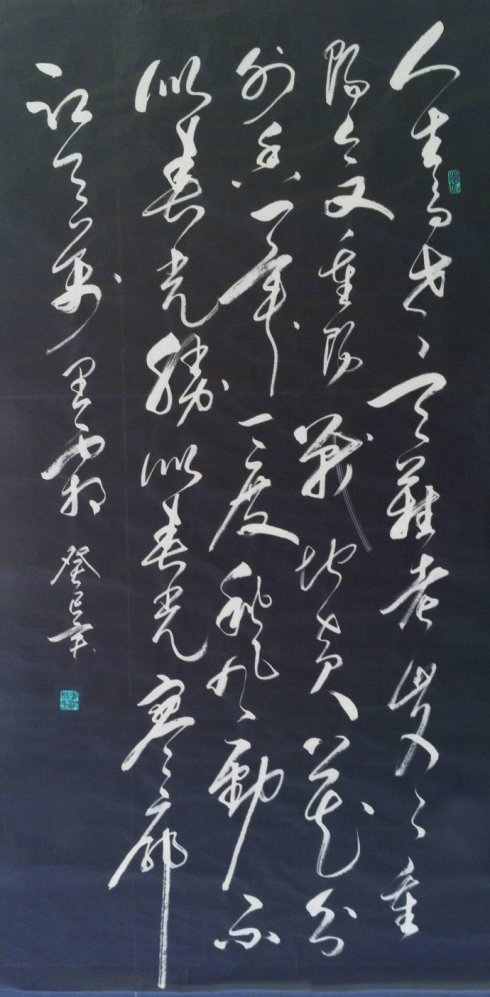 人生易老天難老歲々重
陽今又重陽戰地黃花分
外香一年一度秋風勁不
似春光勝似春光寥廓
江天萬里霜 癸巳年